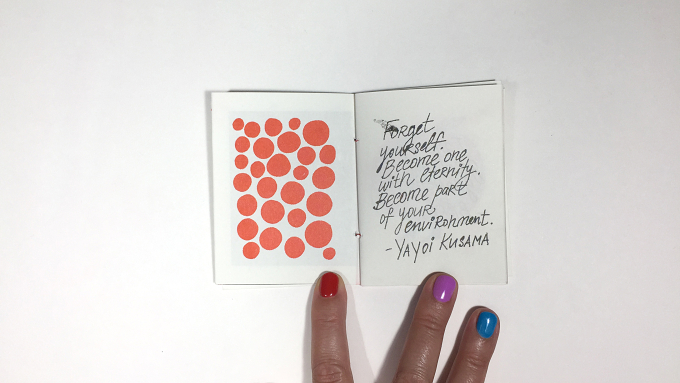 Forget
yourself.
Become one
with eternity.
Become part
of your
environment.
-YAYOi KUSAMA